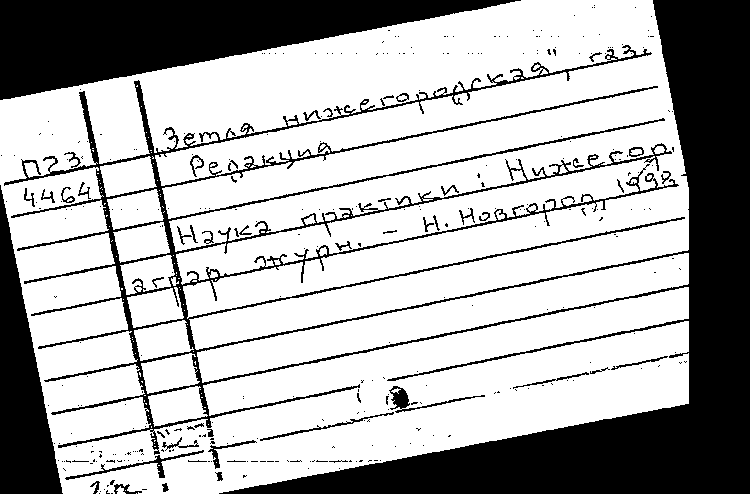 П23
4464
"Земля нижегородская", газ.
Редакция.
Наука практики: Нижегор.
аграр. журн. – Н. Новгород, 1998